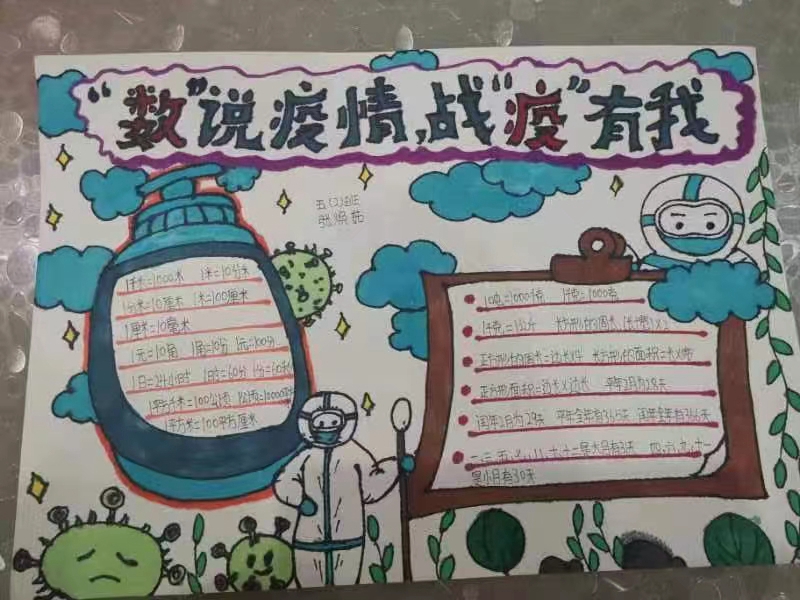 “数”说疫情,战“疫”有我
五(2)班
1千米=1000米 1米=10分米
1分米=10厘米 1米=100厘米
1厘米=10毫米
1元=10角 1角=10分 1元=100分
1日=24小时 1时=60分 1分=60秒
1平方千米=100公顷 1公顷=10000平方米
1平方米=100平方厘米
1千克=1000克
1千克=1公斤 长方形的周长 (长+宽)×2
正方形的周长=边长×4 长方形的面积=长×宽
正方形面积=边长×边长 平年2月为28天
闰年2月为29天 平年全年有365天 闰年全年有366天
一、三、五、七、八、十、十二是大月有31天 四、六、九、十一
是小月有30天